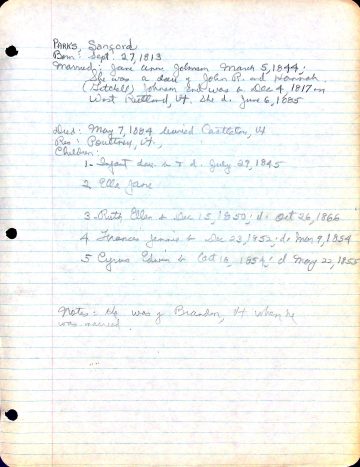 PARKS, Sanford
Born: Sept. 27, 1813
Married: Jane Anne Johnson March 5, 1844;
She was a dau of John R. and Hannah
(Getchell) Johnson and was b. Dec 4, 1817 in
West Rutland, Vt. She d. June 6, 1885
Died: May 7, 1884 buried Castleton, Vt
Res: Poultney, Vt.,
Children:
1. Infant dau b & d. July 29, 1845
2 Ella Jane
3. Ruth Ellen b Dec 15, 1850; d. Oct 26, 1866
4 Frances Jennie b Dec 23, 1852; d. 9, 1854
5 Cyrus Edwin b Oct 18, 1854; d May 22, 1855
Notes: He was of Brandon, Vt when he
was married.